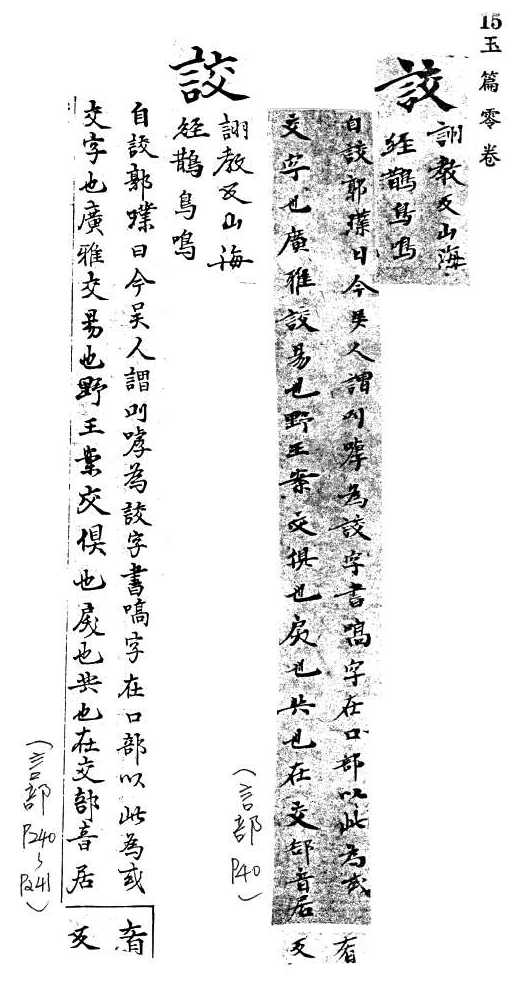 15玉篇零卷
詨
詡教反山海
經鵲鳥鳴
自詨郭璞曰今吳人謂叫嘑為詨字書嗃字在口部以此為或
交字也廣雅詨易也野王案交俱也戾也共也在交部音居
肴
反
(言部 P40)
詨
詡教反山海
經鵲鳥鳴
自詨郭璞曰今吳人謂叫嘑為詨字書嗃字在口部以此為或
交字也廣雅交易也野王案交俱也戾也共也在交部音居
肴
反
(言部 P240~P241)